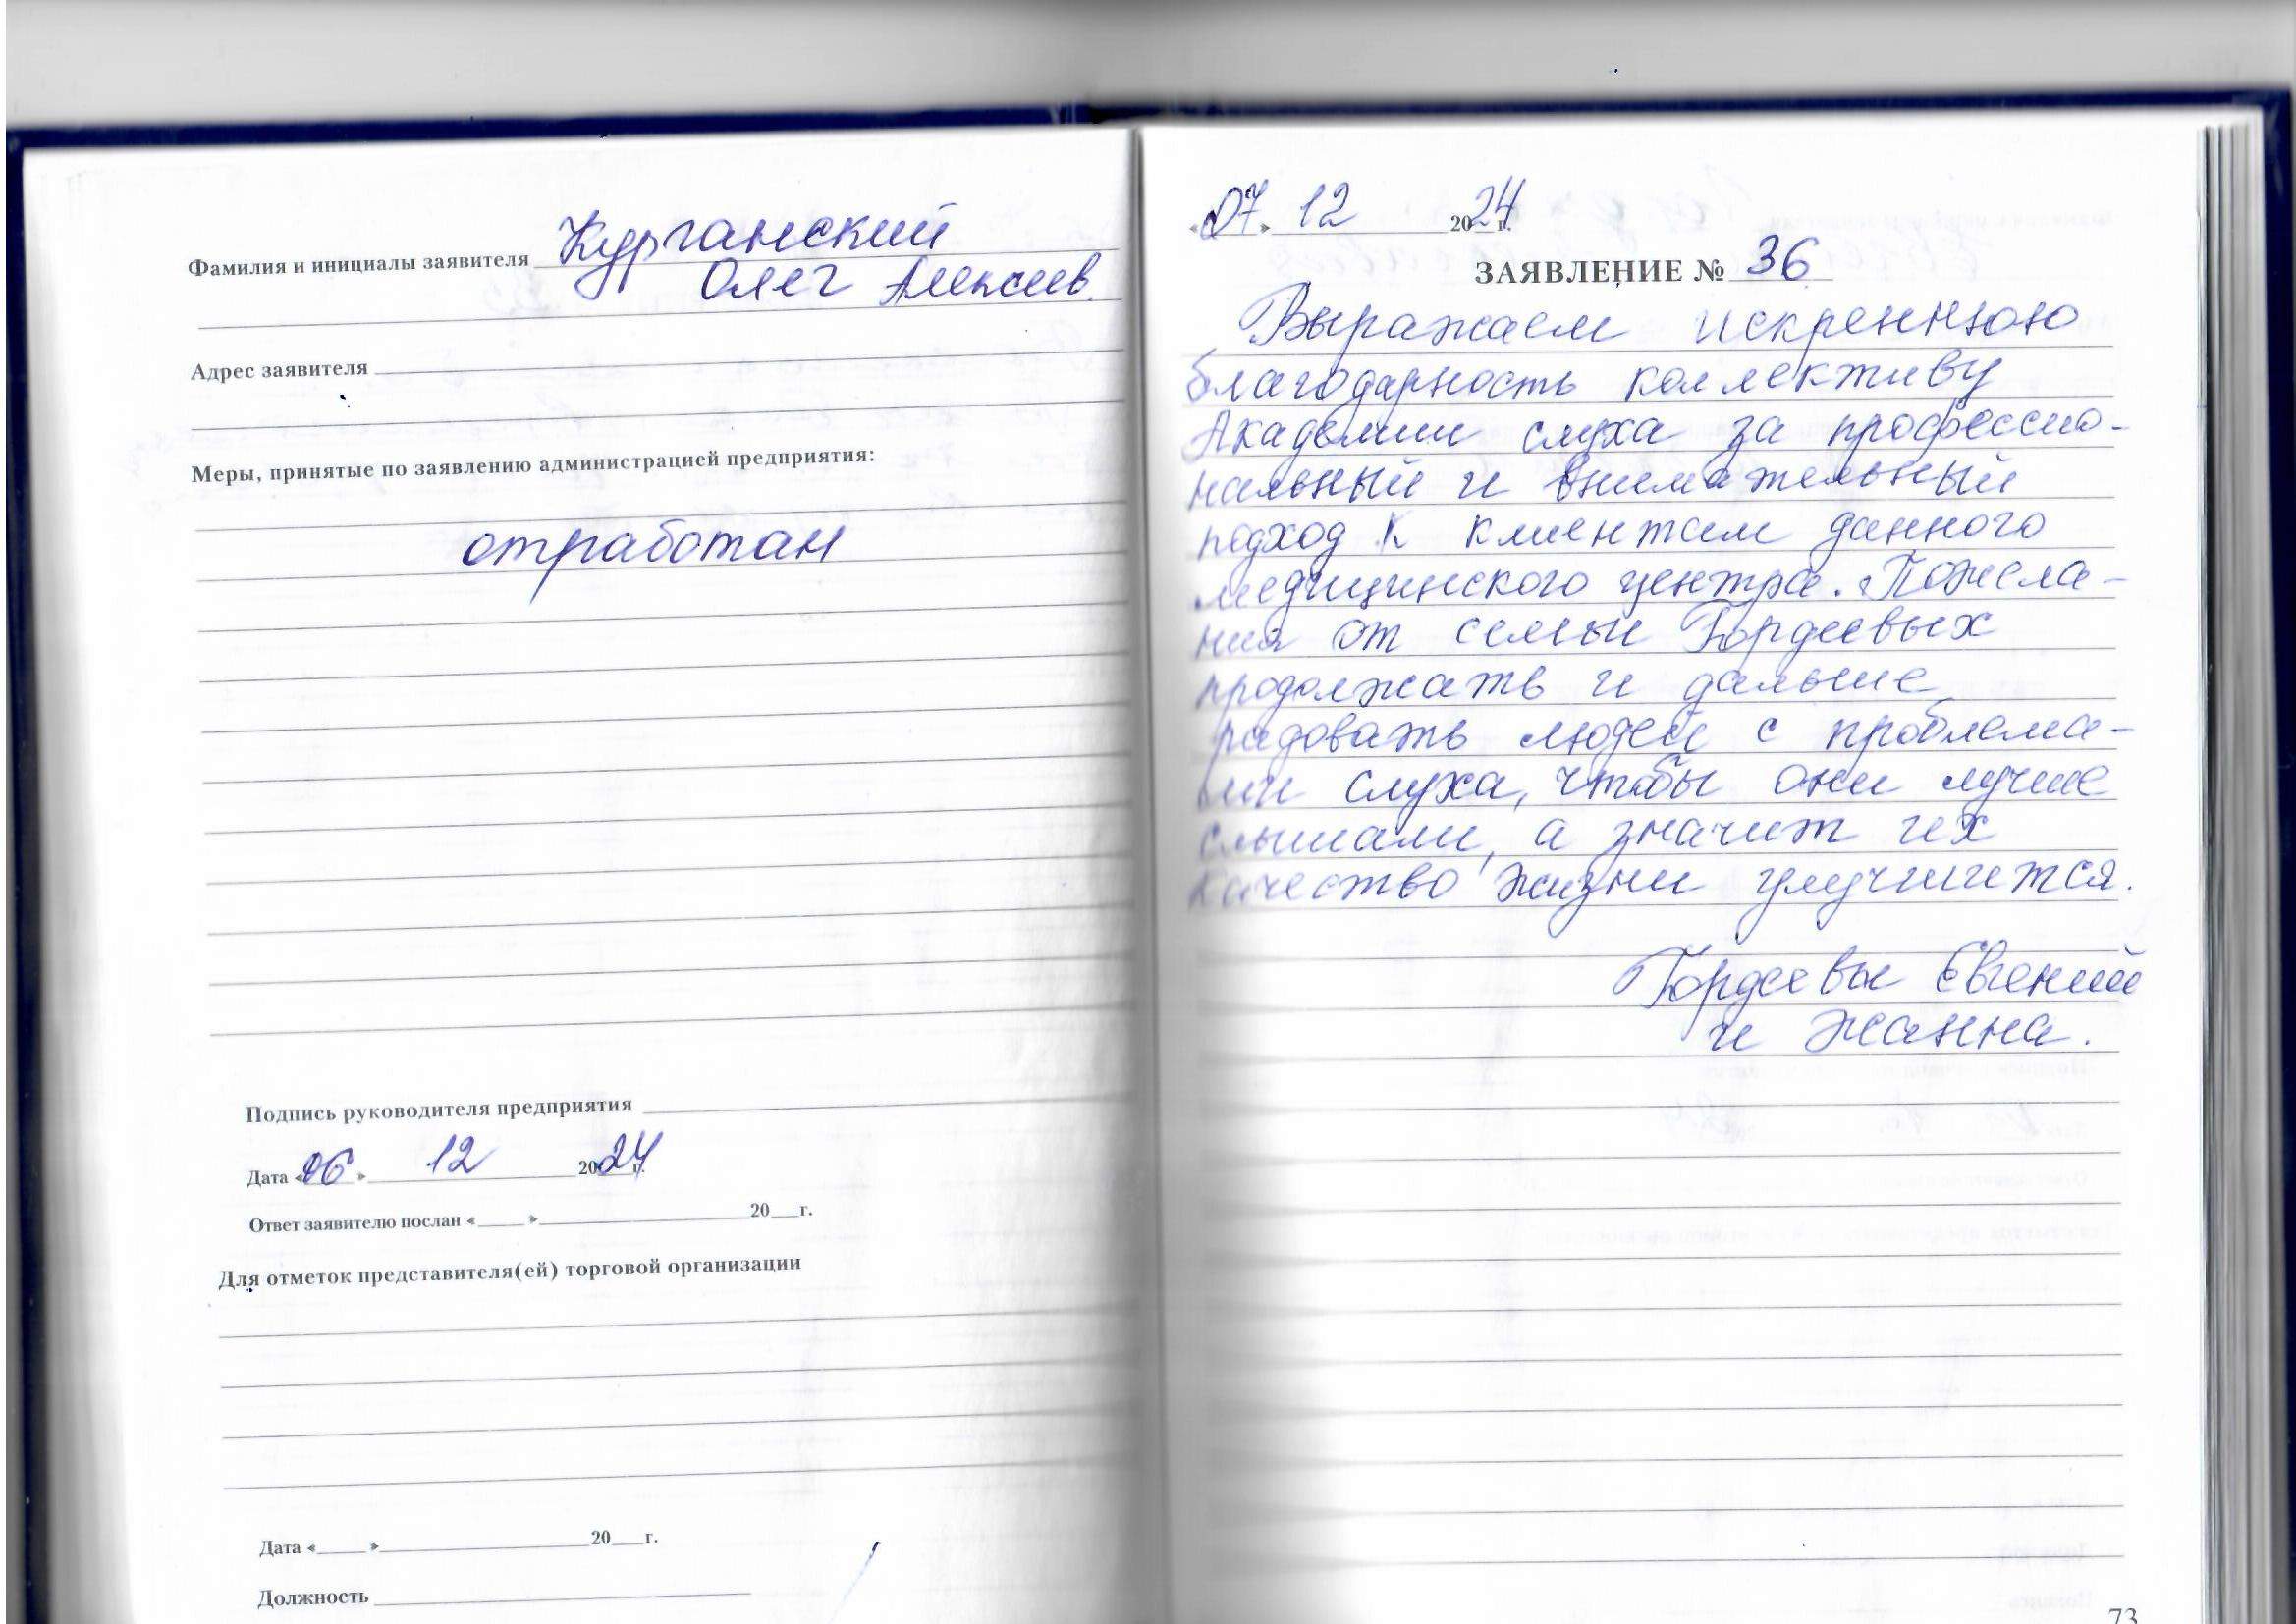 Фамилия и инициалы заявителя Курганский
Олег Алексеев.
Адрес заявителя
Меры, принятые по заявлению администрацией предприятия:
отработан
Подпись руководителя предприятия
Дата «06» 12 2024 г.
Ответ заявителю послан «____» 20__г.
Для отметок представителя(ей) торговой организации
Дата «____» 20__г.
Должность
«07» 12 2024 г.
ЗАЯВЛЕНИЕ № 36
Выражаем искреннюю
благодарность коллективу
Академии слуха за профессио-
нальный и внимательный
подход к клиентам данного
медицинского центра. Пожела-
ния от семьи Гордеевых
продолжать и дальше
радовать людей с проблема-
ми слуха, чтобы они лучше
слышали, а значит их
качество жизни улучшится.
Гордеевы Евгений
и Жанна.
73